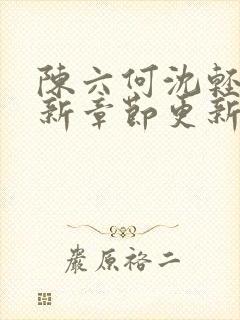 陳六何沈輕
新章節更新
嚴原裕二